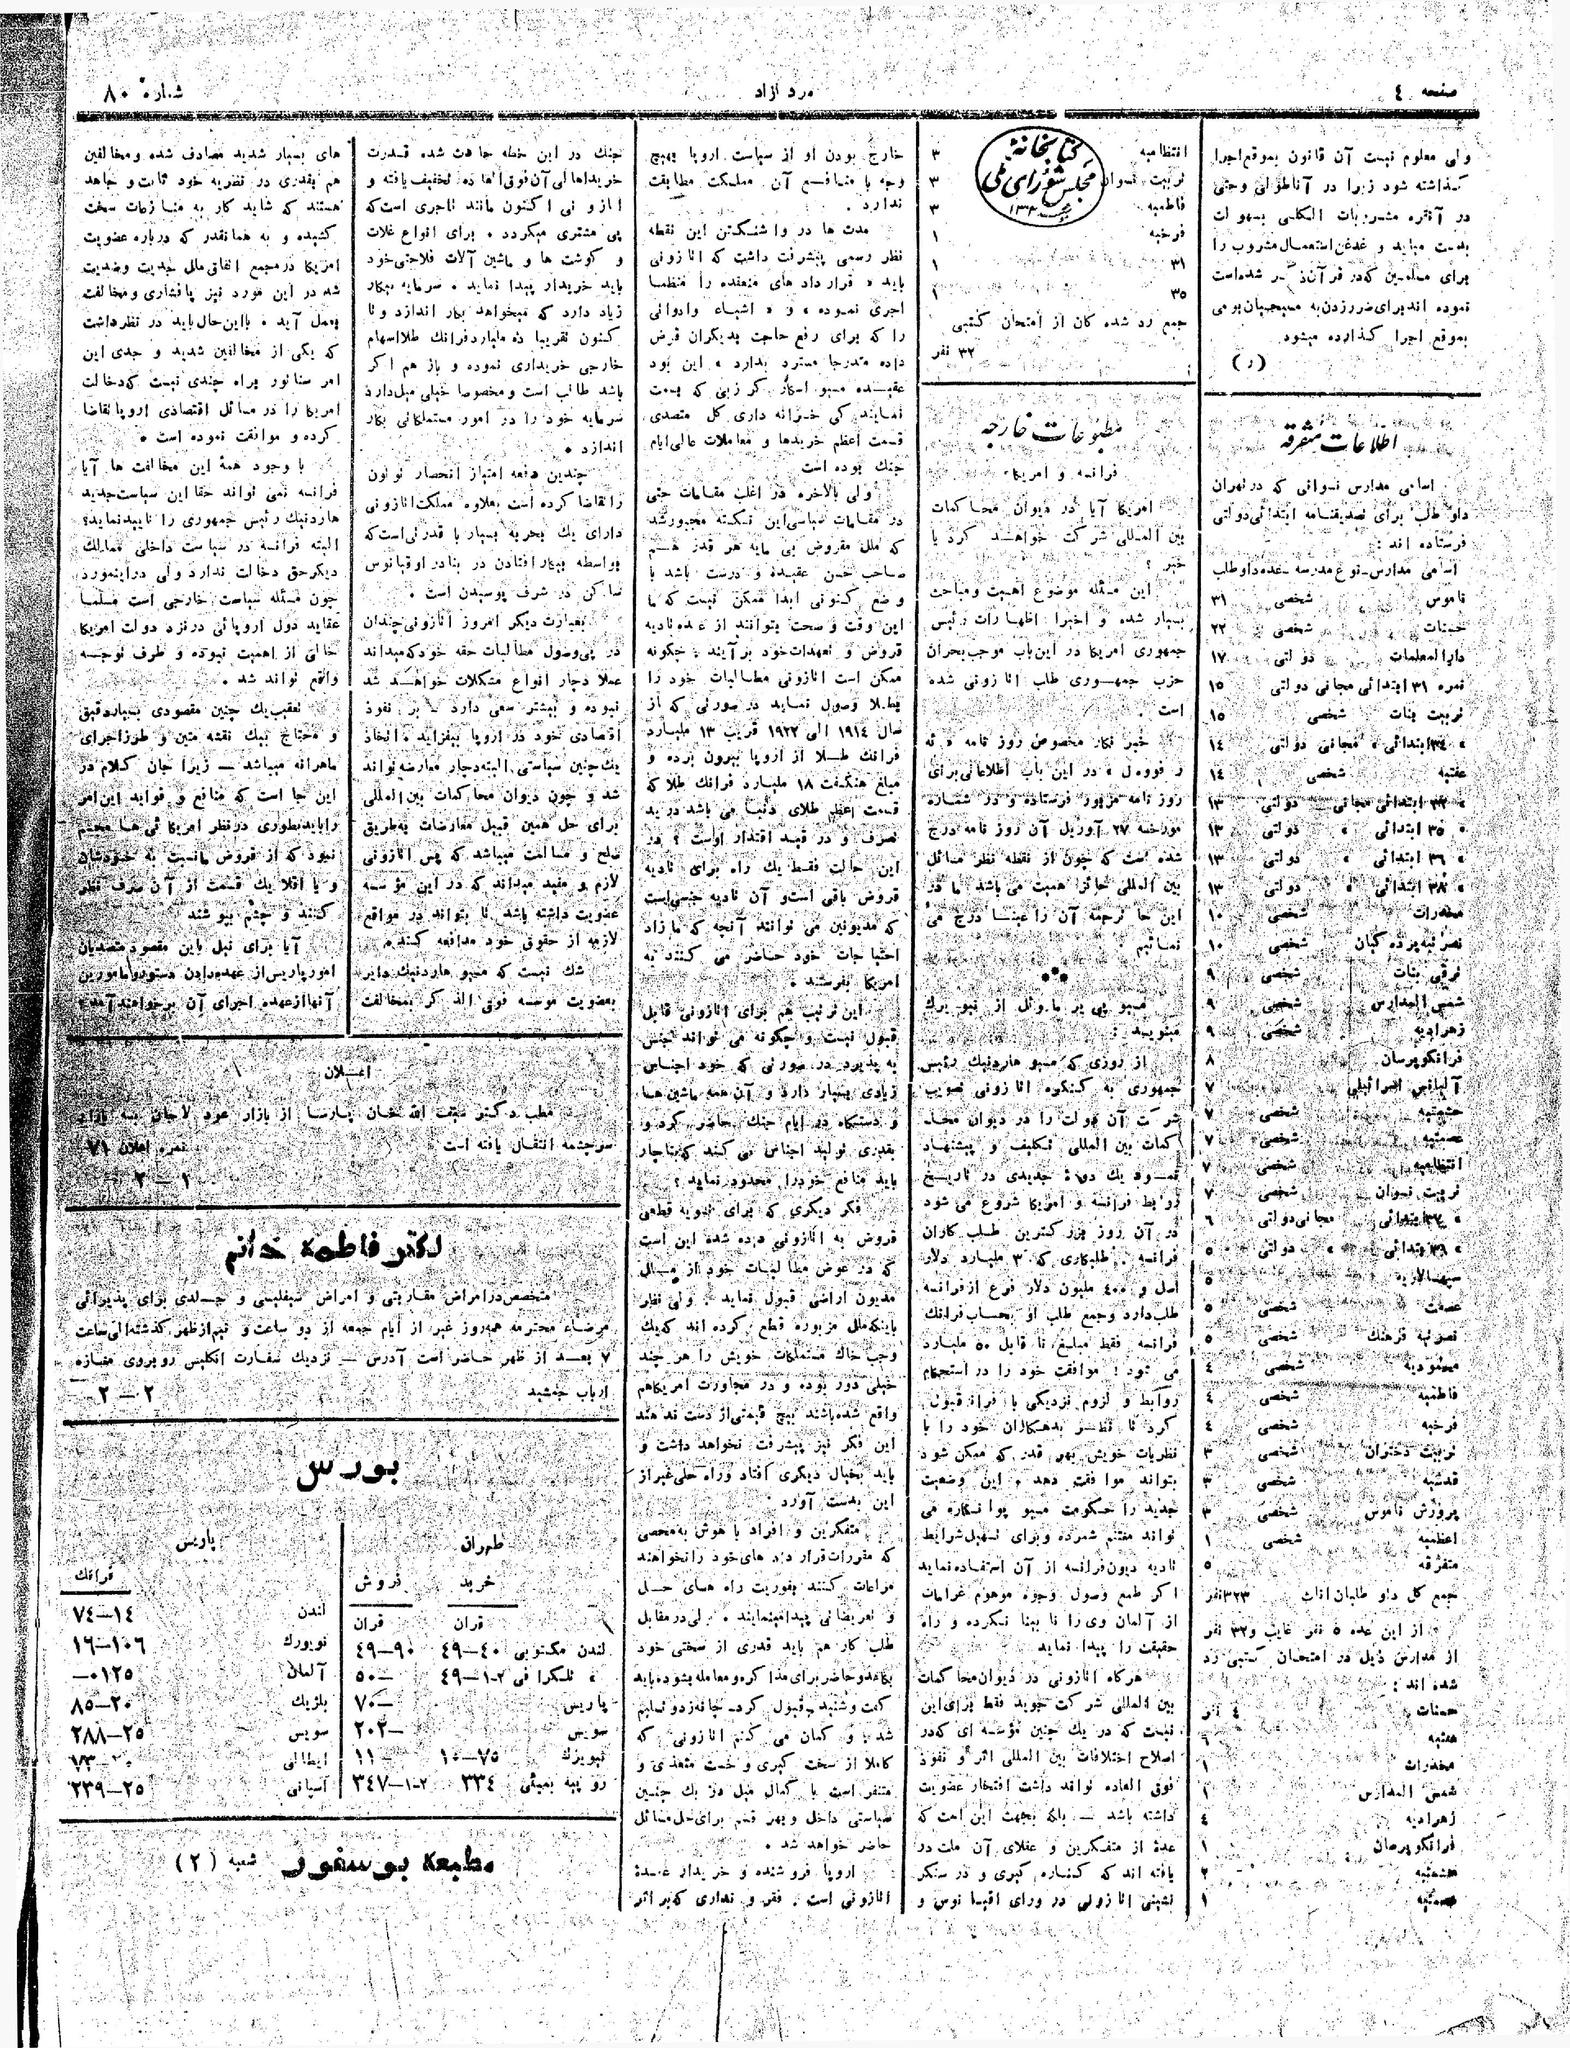 صفحه ٤
مرد آزاد
شماره ٨٠
ولی معلوم نیست آن قانون بموقع اجرا
گذاشته شود زیرا در آناطولی وحتی
در آنقره مشروبات الکلی بسهولت
بدست میاید و غدغن استعمال مشروب را
برای مسلمین که در قرآن ذکر شده است
نموده اند برای ضرر زدن به مسیحیان بومی
بموقع اجرا گذارده میشود
(ر)
اطلاعات متفرقه
اسامی مدارس نسوانی که در تهران
داو طلب برای تصدیقنامه ابتدائی دولتی
فرستاده اند :
اسامی مدارس - نوع مدرسه - عده داوطلب
ناموس شخصی ٣١
حسنات شخصی ٢٢
دارالمعلمات دولتی ١٧
نمره ٣١ ابتدائی مجانی دولتی ١٥
تربیت بنات شخصی ١٥
« ٣٤ ابتدائی « مجانی دولتی ١٤
عفتیه شخصی ١٤
« ٣٢ ابتدائی مجانی دولتی ١٣
« ٣٥ ابتدائی « دولتی ١٣
« ٣٦ ابتدائی « دولتی ١٣
« ٣٨ ابتدائی « دولتی ١٣
مخدرات شخصی ١٠
نصرتیه پرده گیان شخصی ١٠
ترقی بنات شخصی ٩
شمس المدارس شخصی ٩
زهرادیه شخصی ٩
فرانکوپرسان ٨
آلیانس اسرائیلی ٧
حشمتیه شخصی ٧
عصمتیه شخصی ٧
انتظامیه شخصی ٧
تربیت نسوان شخصی ٧
« ٣٧ ابتدائی مجانی دولتی ٦
« ٣٩ ابتدائی « دولتی ٥
سپهسالاریه ٥
عصمت شخصی ٥
نصرتیه فرهنگ شخصی ٥
محمودیه شخصی ٤
فاطمیه شخصی ٤
فرخیه شخصی ٤
تربیت دختران شخصی ٣
قدسیه شخصی ٣
پرورش ناموس شخصی ٣
اعظمیه شخصی ١
متفرقه ٥
جمع کل داو طلبان اناث ٣٢٣ نفر
از این عده ٥ نفر غایب و ٣٢ نفر
از مدارس ذیل در امتحان کتبی رد
شده اند :
حسنات ٤ نفر
عفتیه ٦
مخدرات ١
شمس المدارس ١
زهرادیه ٤
فرانکوپرسان ١
حشمتیه ٢
عصمتیه ١
انتظامیه ٣
تربیت نسوان ٣
فاطمیه ٣
فرخیه ١
٣١ ١
٣٥ ١
جمع رد شده کان از امتحان کتبی
٣٢ نفر
کتابخانهٔ
مجلس شورای ملی
مطبوعات خارجه
فرانسه و امریکا
امریکا آیا در دیوان محاکمات
بین المللی شرکت خواهند کرد یا
خیر ؟
این مسئله موضوع اهمیت ومباحث
بسیار شده و اخیرا اظهارات رئیس
جمهوری امریکا در این باب موجب بحران
حزب جمهوری طلب اتازونی شده
است .
خبر نگار مخصوص روز نامه « ئه
ر فوویل » در این باب اطلاعاتی برای
روز نامه مزبور فرستاده و در شماره
مورخه ٢٧ آوریل آن روز نامه درج
شده است که چون از نقطه نظر مسائل
بین المللی حائز اهمیت می باشد ما در
این جا ترجمه آن را عینا درج می
نمائیم :
مسیو پی یر ما وئل از نیو یرک
مینویسد :
از روزی که مسیو هاردنیک رئیس
جمهوری به کنگره اتازونی تصویب
شرکت آن دولت را در دیوان محا
کمات بین المللی تکلیف و پیشنهاد
نمود یک دورهٔ جدیدی در تاریخ
روابط فرانسه و امریکا شروع می شود
در آن روز بزرگترین طلب کاران
فرانسه . طلبکاری که ٣ ملیارد دلار
اصل و ٤٠٠ ملیون دلار فرع از فرانسه
طلب دارد وجمع طلب او بحساب فرانک
فرانسه فقط مبلغ نا قابل ٥٠ ملیارد
می شود ! موافقت خود را در استحکام
روابط و لزوم نزدیکی با فرانسه قبول
کرد تا نظر بدهکاران خود را با
نظریات خویش بهر قدر که ممکن شود
بتواند موافقت دهد . این وضعیت
جدید را حکومت مسیو پوانکاره می
تواند مغتنم شمرده وبرای تسهیل شرایط
تادیه دیون فرانسه از آن استفاده نماید
اگر طمع وصول وجوه موهوم غرامات
از آلمان وی را نا بینا نکرده و راه
حقیقت را پیدا نماید
هرگاه اتازونی در دیوان محاکمات
بین المللی شرکت جوید فقط برای این
نیست که در یک چنین مؤسسه ای که در
اصلاح اختلافات بین المللی اثر و نفوذ
فوق العاده تواند داشت افتخار عضویت
داشته باشد — بلکه بجهت این است که
عدهٔ از متفکرین و عقلای آن ملت در
یافته اند که کناره گیری و در سنگر
نشینی اتازونی در ورای اقیانوس و
خارج بودن او از سیاست اروپا بهیچ
وجه با منافع آن مملکت مطابقت
ندارد .
مدت ها در واشنگتن این نقطه
نظر رسمی پیشرفت داشت که اتازونی
باید « قرار داد های منعقده را منظما
اجری نموده » و « اشیاء وادواتی
را که برای رفع حاجت بدیگران قرض
داده متدرجا مسترد بدارد » این بود
عقیده مسیو اسکار کرزبی که بسمت
نمایندگی خزانه داری کل متصدی
قسمت اعظم خریدها و معاملات عالی ایام
جنک بوده است
ولی بالاخره در اغلب مقامات حتی
در مقامات سیاسی این نکته مجبور شد
که ملل مقروض بی مایه هر قدر هم
صاحب حسن عقیده و درست باشد با
وضع کنونی ابدا ممکن نیست که ما
این وقت و صحت بتوانند از عده تادیه
قروض و تعهدات خود برآیند : چگونه
ممکن است اتازونی مطالبات خود را
بطلا وصول نماید در صورتی که از
سال ١٩١٤ الی ١٩٢٢ قریب ١٣ ملیارد
فرانک طلا از اروپا بیرون برده و
مبلغ هنگفت ١٨ ملیارد فرانک طلا که
قسمت اعظم طلای دنیا می باشد در ید
تصرف و در قید اقتدار اوست ؟ در
این حالت فقط یک راه برای تادیه
قروض باقی است و آن تادیه جنسی است
که مدیونین می توانند آنچه که مازاد
احتیاجات خود حاضر می کنند به
امریکا بفرستند .
این ترتیب هم برای اتازونی قابل
قبول نیست و چگونه می تواند جنس
به پذیرد در صورتی که خود اجناس
زیادی بسیار دارد و آن همه ماشین ها
و دستگاه در ایام جنک حاضر کرد و
بقدری تولید اجناس می کنند که ناچار
باید منافع خود را محدود نماید ؟
فکر دیگری که برای تسویه قطعی
قروض به اتازونی داده شده این است
که در عوض مطالبات خود از ممالک
مدیون اراضی قبول نماید . ولی نظر
باینکه ملل مزبوره قطع کرده اند که یک
وجب خاک مستملکات خویش را هر چند
خیلی دور بوده و در مجاورت امریکا هم
واقع شده باشند بهیچ قیمتی از دست ندهند
این فکر نیز پیشرفت نخواهد داشت و
باید بخیال دیگری افتاد وراه حلی غیر از
این بدست آورد .
متفکرین و افراد با هوش به محضی
که مقررات قرار داد های خود را نخواهند
مراعات کنند بفوریت راه های حل
و تعریضاتی پیدا مینمایند . ولی در مقابل
طلب کار هم باید قدری از سختی خود
بکاهد و حاضر برای مذاکره و معامله بشود باید
گفت و شنید قبول کرد.
شد و گمان می کنم اتازونی که
کاملا از سخت گیری و خست متعدی و
متنفر است با کمال میل در یک چنین
سیاستی داخل و بهر قسم برای حل مسائل
حاضر خواهد شد .
اروپا فروشنده و خریدار عمدهٔ
اتازونی است . فقر و نداری که بر اثر
جنک در این خطه حادث شده قدرت
خریداها لی آن فوق العاده تخفیف یافته و
اتازونی اکنون مانند تاجری است که
پی مشتری میگردد . برای انواع غلات
و گوشت ها و ماشین آلات فلاحتی خود
باید خریدار پیدا نماید . سرمایه بیکار
زیاد دارد که میخواهد بکار اندازد و تا
کنون تقریبا ده ملیارد فرانک طلا اسهام
خارجی خریداری نموده و باز هم اگر
باشد طالب است و مخصوصا خیلی میل دارد
سرمایه خود را در امور مستملکاتی بکار
اندازد .
چندین دفعه امتیاز انحصار توتون
را تقاضا کرده است بعلاوه مملکت اتازونی
دارای یک بحریه بسیار با قدرتی است که
بواسطه بیکار افتادن در بنادر اوقیانوس
ساکن در شرف پوسیدن است .
بعبارت دیگر امروز اتازونی چندان
در پی وصول مطالبات حقه خود که میداند
عملا دچار انواع مشکلات خواهد شد
نبوده و بیشتر سعی دارد — بر نفوذ
اقتصادی خود در اروپا بیفزاید . اتخاذ
یک چنین سیاستی البته دچار معارضه تواند
شد و چون دیوان محاکمات بین المللی
برای حل همین قبیل معارضات بطریق
صلح و مسالمت میباشد که پس اتازونی
لازم و مفید میداند که در این مؤسسه
عضویت داشته باشد تا بتواند در مواقع
لازمه از حقوق خود مدافعه کند .
شک نیست که مسیو هاردنیک دایر
بعضویت موسسه فوق الذکر بمخالفت
های بسیار شدید مصادف شده و مخالفین
هم بقدری در نظریه خود ثابت و جاهد
هستند که شاید کار به منازعات سخت
کشیده و به همانقدر که درباره عضویت
امریکا در مجمع اتفاق ملل جدیت وضدیت
شد در این مورد نیز پافشاری و مخالفت
بعمل آید . با این حال باید در نظر داشت
که یکی از مخالفین شدید و جدی این
امر سناتور براه چندی نیست که دخالت
امریکا را در مسائل اقتصادی اروپا تقاضا
کرده و موافقت نموده است .
با وجود همهٔ این مخالفت ها آیا
فرانسه نمی تواند حقا این سیاست جدید
هاردنیک رئیس جمهوری را تایید نماید؟
البته فرانسه در سیاست داخلی ممالک
دیگر حق دخالت ندارد ولی در اینمورد
چون مسئله سیاست خارجی است مسلما
عقاید دول اروپائی در نزد دولت امریکا
خالی از اهمیت نبوده و طرف توجه
واقع تواند شد .
تعقیب یک چنین مقصودی بسیار دقیق
و محتاج بیک نقشه متین و طرز اجرای
ماهرانه میباشد — زیرا جان کلام در
این جا است که منافع و فواید این امر
را باید بطوری در نظر امریکائی ها مجسم
نمود که از قروض مانسبت به خودشان
و یا اقلا یک قسمت از آن صرف نظر
کنند و چشم بپوشند
آیا برای نیل باین مقصود متصدیان
امور پاریس از عهده دادن دستور و مامورین
آنها از عهده اجرای آن برخواهند آمد؟
اعلان
مطب دکتر سیف الله خان پارسا از بازار عود لاجان به بازار
سرچشمه انتقال یافته است نمره اعلان ٧١
١—٢
دکتر فاطمه خانم
متخصص در امراض مقاربتی و امراض سیفلیسی و جلدی برای پذیرائی
مرضاء محترمه همه روز غیر از ایام جمعه از دو ساعت و نیم از ظهر گذشته الی ساعت
٧ بعد از ظهر حاضر است آدرس — نزدیک سفارت انگلیس روبروی مغازه
ارباب جمشید ٢—٢
بورس
طهران
خرید فروش
قران قران
لندن مکتوبی ٤٠—٤٩ ٩٠—٤٩
« تلگرافی ٢-١—٤٩ —٥٠
پاریس —٧٠
سویس —٢٠٢
نیویرک ٧٥—١٠ —١١
روپیه بمبئی ٣٣٤ ٢-١—٣٤٧
پاریس
فرانک
لندن ١٤—٧٤
نویورک ١٠٦—١٦
آلمان ٠١٢٥—
بلژیک ٢٠—٨٥
سویس ٢٥—٢٨٨
ایطالی —٧٣
آسپانی ٢٥—٢٣٩
مطبعه بوسفور شعبه (٢)